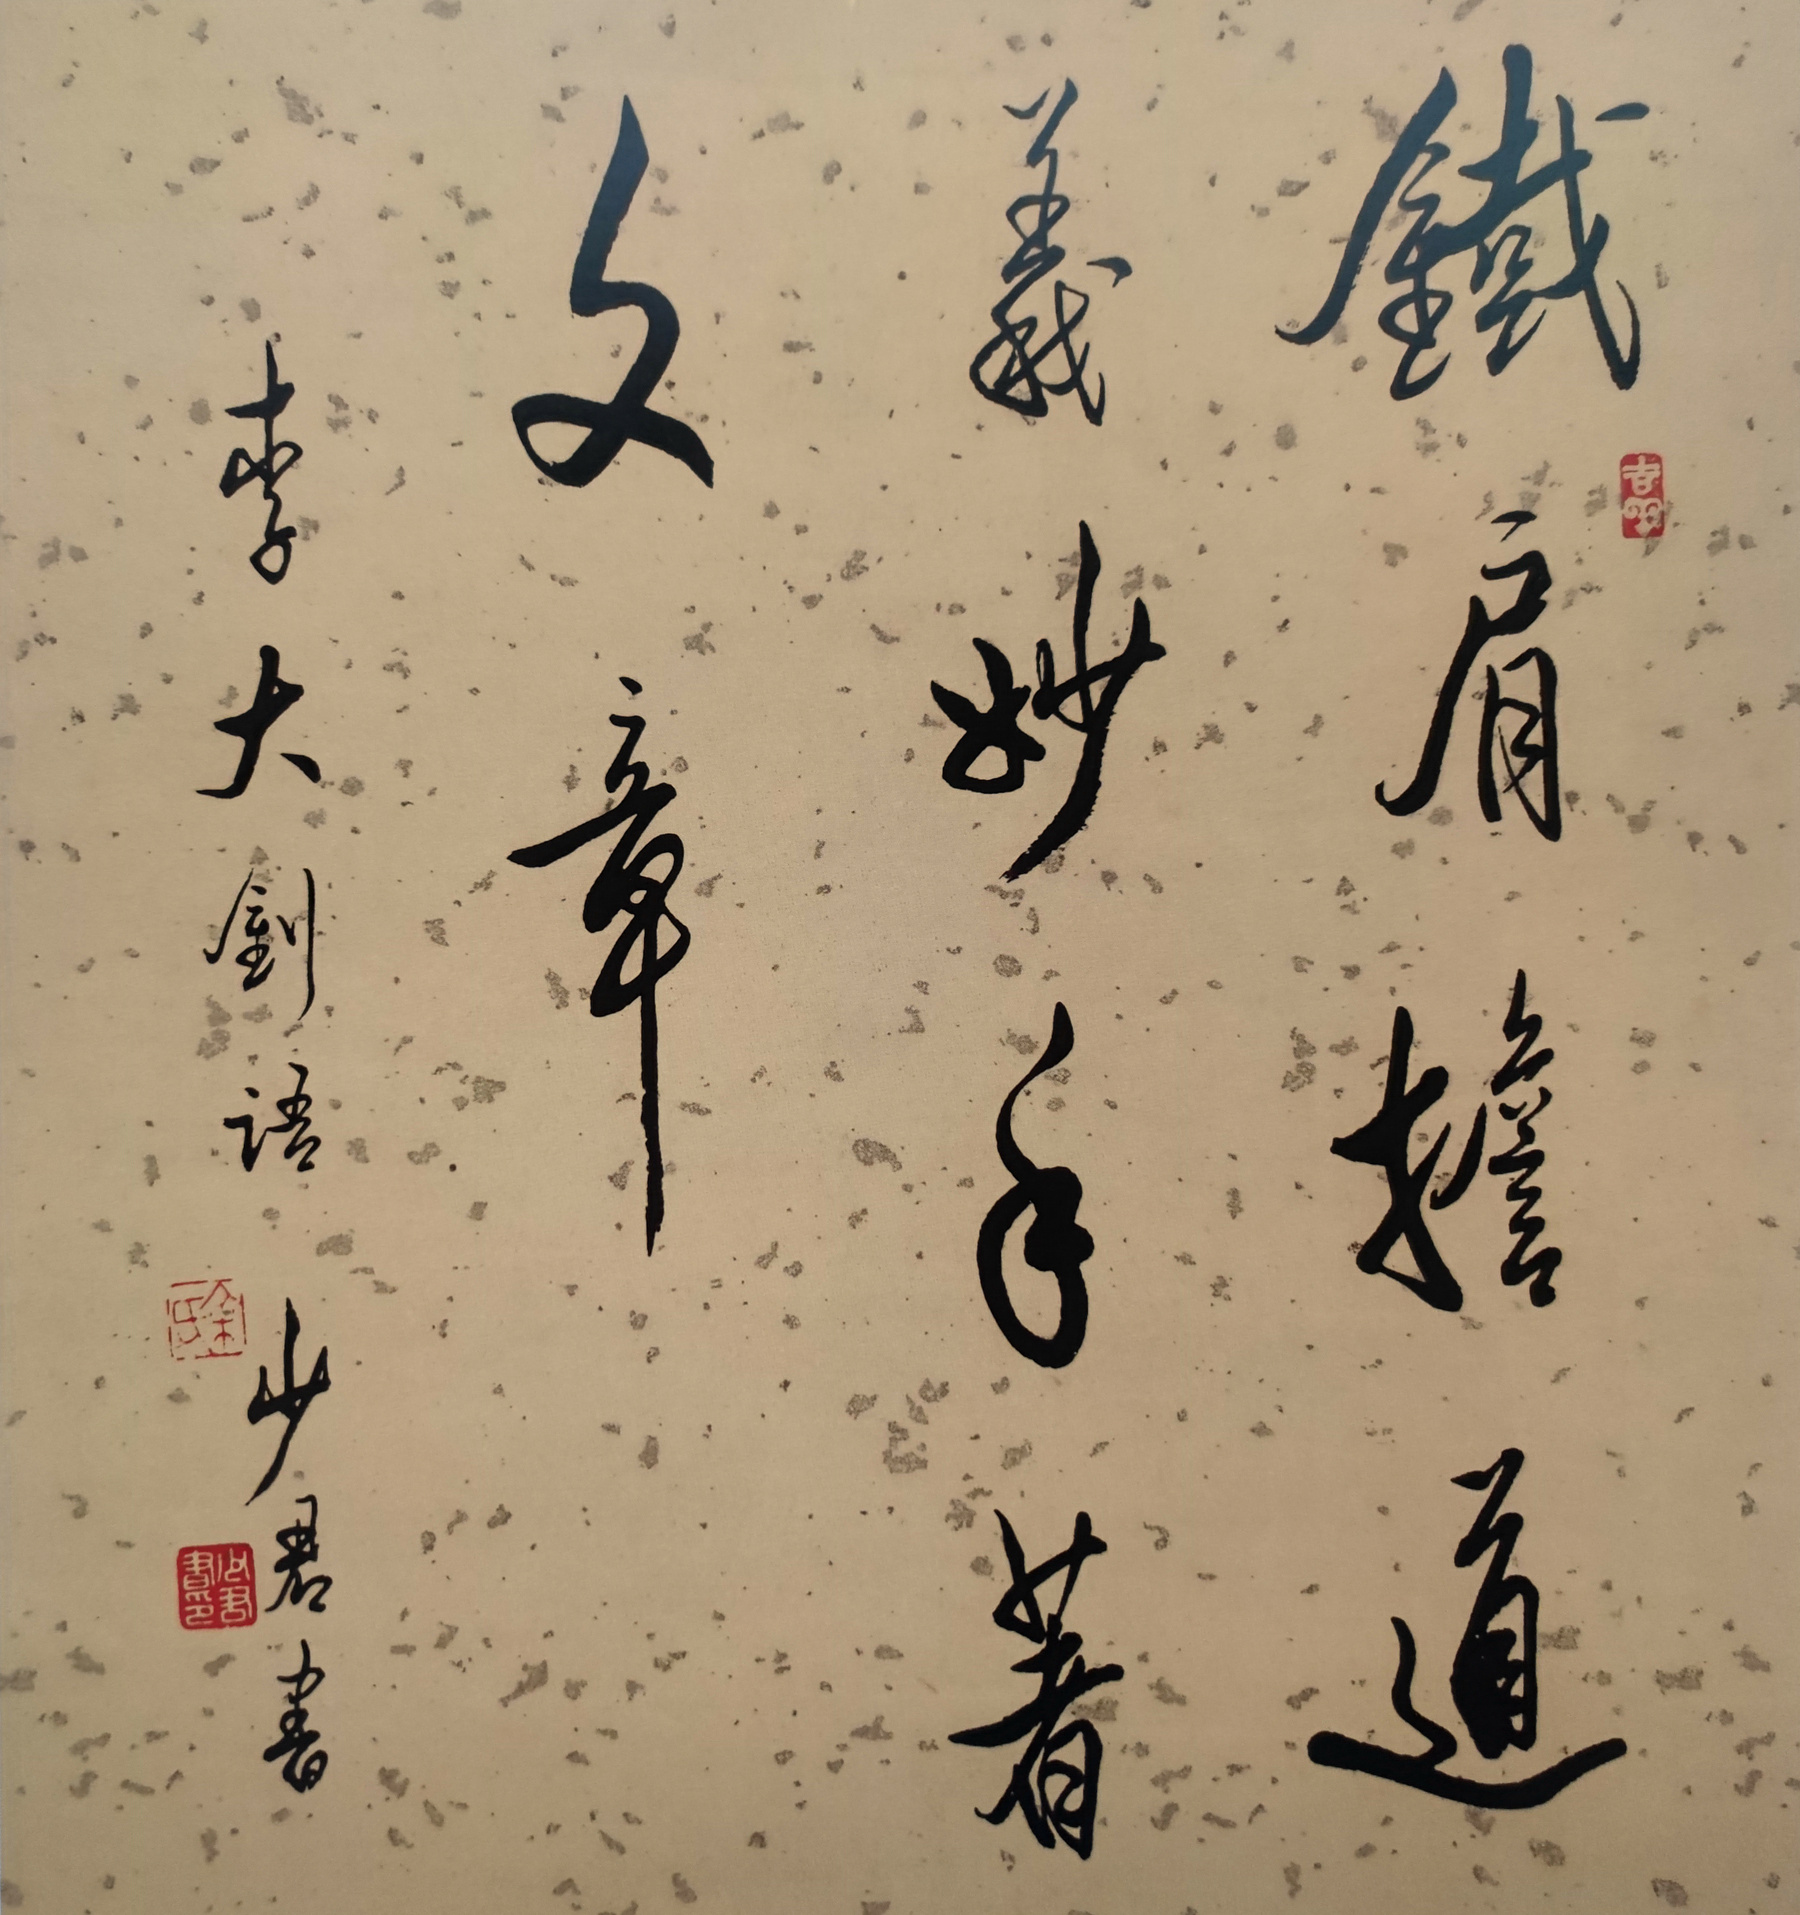 鐵肩擔道
義妙手著
文章
李大釗語 少君書
少君書印